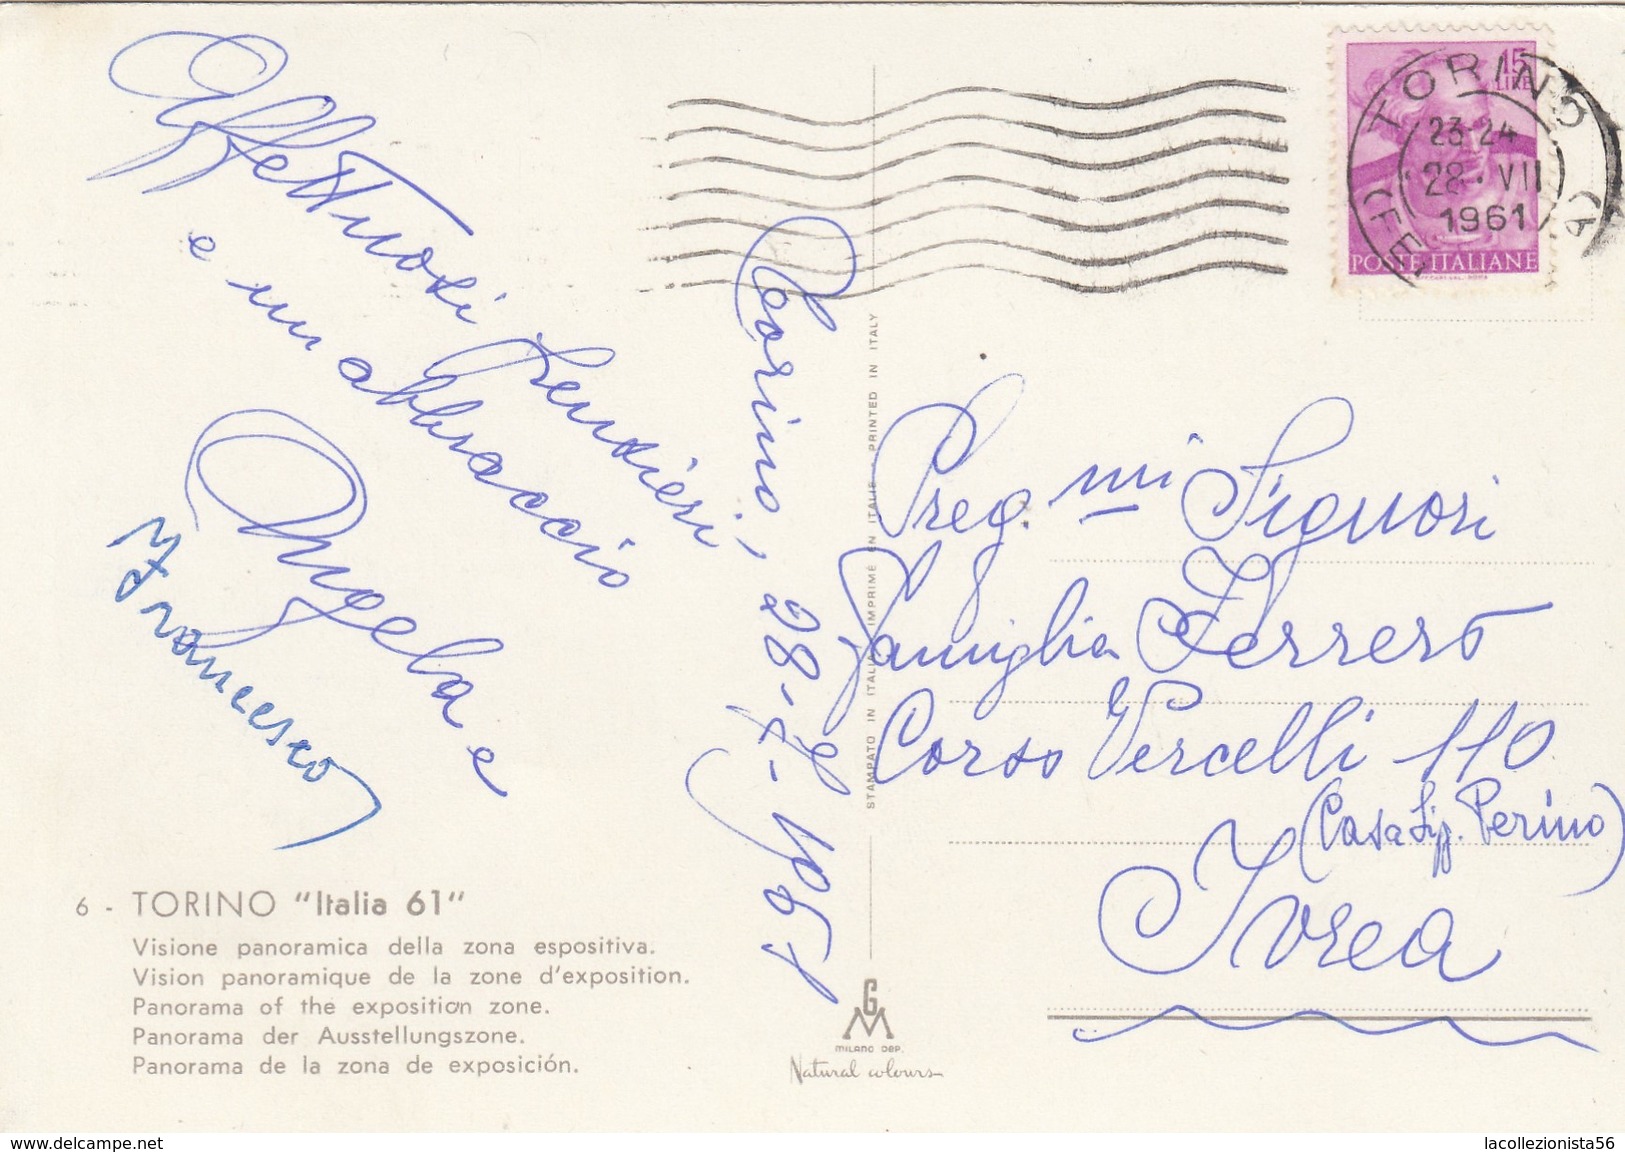 Affettuosi pensieri
e un abbraccio
Angela e
Francesco
Torino, 28-7-1961
6 - TORINO "Italia 61"
Visione panoramica della zona espositiva.
Vision panoramique de la zone d'exposition.
Panorama of the exposition zone.
Panorama der Ausstellungszone.
Panorama de la zona de exposición.
STAMPATO IN ITALIA IMPRIMÉ EN ITALIE PRINTED IN ITALY
G
M
MILANO DEP.
Natural colours
15
LIRE
POSTE ITALIANE
TORINO
23-24
28. VII
1961
Preg.mi Signori
Famiglia Ferrero
Corso Vercelli 110
(Casa Sig. Perino)
Ivrea
www.delcampe.net
lacollezionista56